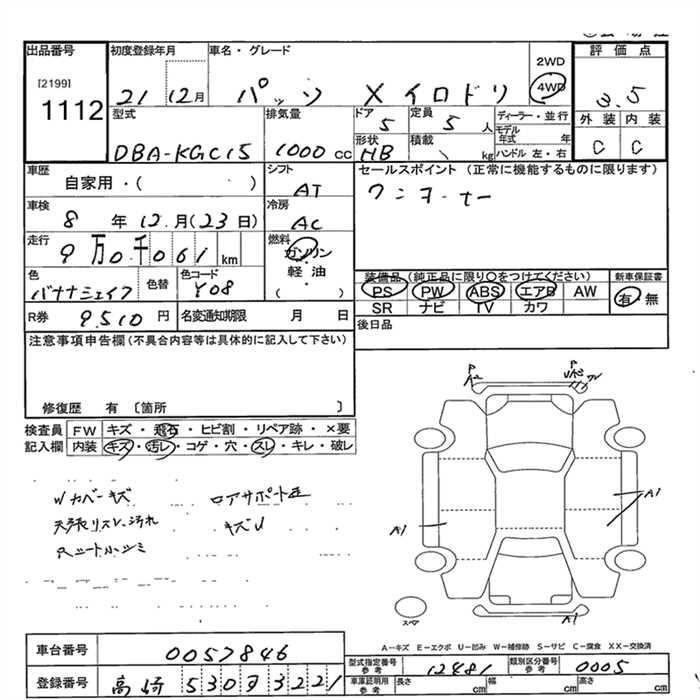 出品番号 初度登録年月 車名・グレード 2WD 評価点
[2199] 4WD
1112 21 12月 パッソ X イロドリ 3.5
型式 排気量 ドア 5 定員 5 人 ディーラー・並行 外装 内装
モデル年式 年
DBA-KGC15 1000 cc 形状 HB 積載 kg ハンドル 左・右 C C
車歴 シフト セールスポイント (正常に機能するものに限ります)
自家用・( ) AT ワンオーナー
車検 冷房
8 年 12 月 (23 日) AC
走行 燃料
9 万 0 千 0 6 1 km ガソリン
軽油 装備品 (純正品に限り○をつけてください) 新車保証書
色 色替 色コード ( ) PS PW ABS エアB AW 有・無
バナナシェイク Y08 SR ナビ TV カワ
R券 9,510 円 名変通知期限 月 日 後日品
注意事項申告欄 (不具合内容等は具体的に記入して下さい)
修復歴 有 〔箇所 〕
検査員 FW キズ・飛石・ヒビ割・リペア跡・×要
記入欄 内装 キズ・汚レ・コゲ・穴・スレ・キレ・破レ
Wカバーキズ ロアサポート歪
天張リスレ、汚れ キズU
A1 A1
A1
スペア A1
A-キズ E-エクボ U-凹み W-補修跡 S-サビ C-腐食 XX-交換済
車台番号 0057846 型式指定番号 参考 12481 類別区分番号 参考 0005
登録番号 高崎 530 3221 車庫証明用 参考 長さ cm 幅 cm 高さ cm